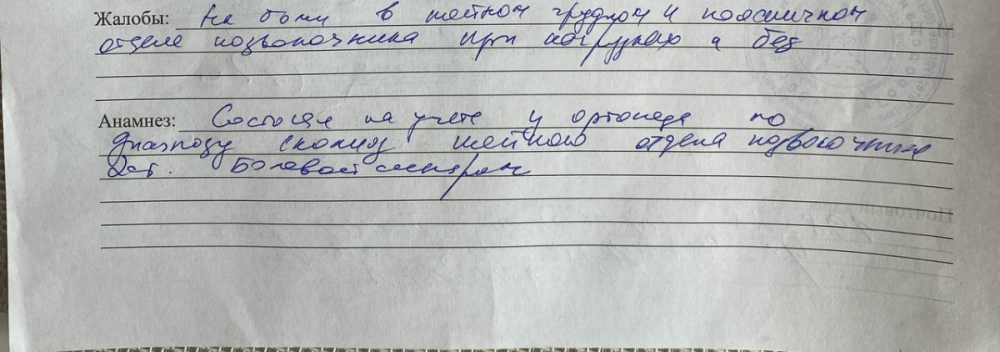 Жалобы: на боли в шейном грудном и поясничном
отделе позвоночника при нагрузках и без
Анамнез: Состоит на учете у ортопеда по
диагнозу сколиоз шейного отдела позвоночника
Болевой синдром